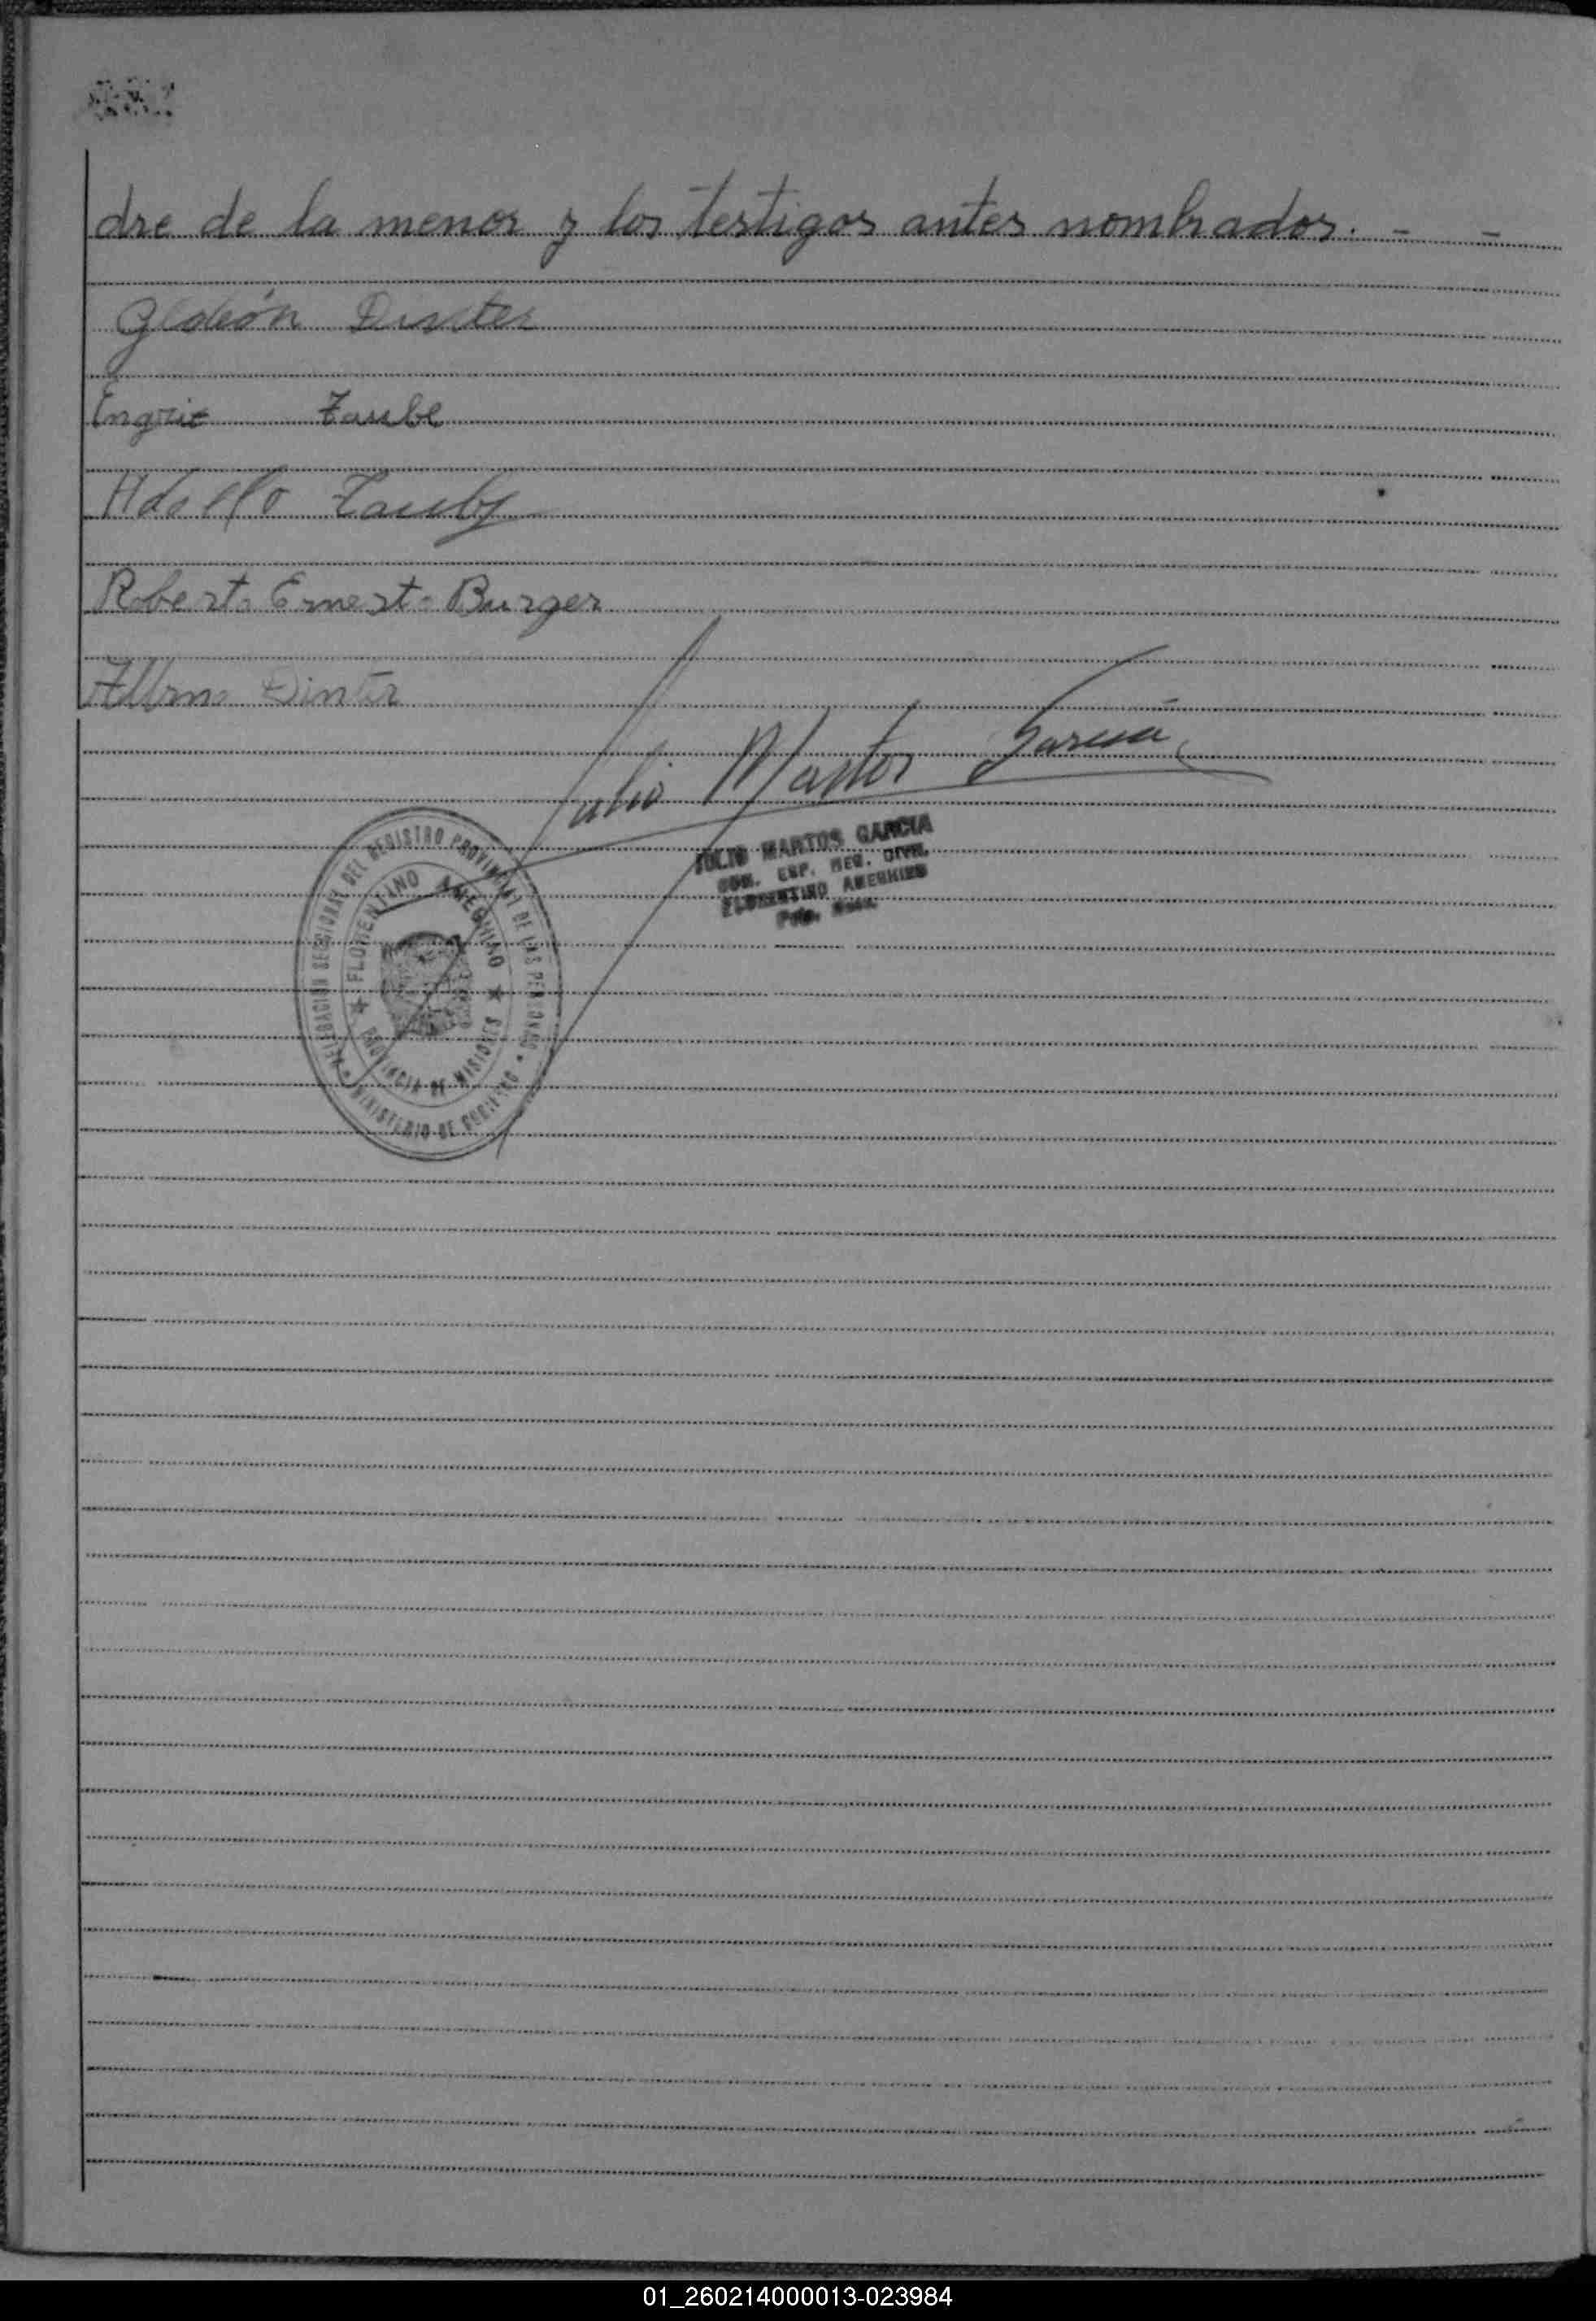 dre de la menor y los testigos antes nombrados. - -
Gedeón Dinter
Ingrit Taube
Adolfo Tauby
Robert Ernest Burger
Albino Dinter
Julio Martos García
JULIO MARTOS GARCIA
ESP. REG. CIVIL
FLORENTINO AMEGHINO
DELEGACION SECCIONAL DEL REGISTRO PROVINCIAL DE LAS PERSONAS
MINISTERIO DE GOBIERNO
★ FLORENTINO AMEGHINO ★
PROVINCIA DE MISIONES
01_260214000013-023984